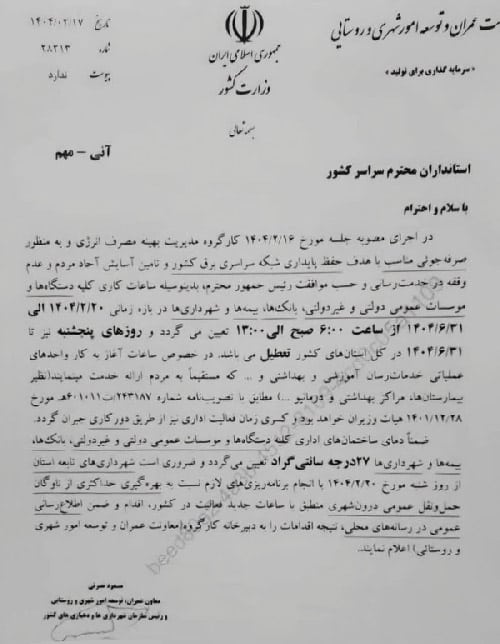 ت عمران و توسعه امور شهری و روستایی
« سرمایه گذاری برای تولید »
جمهوری اسلامی ایران
وزارت کشور
بسمه تعالی
تاریخ ۱۴۰۴/۰۲/۱۷
شماره ۲۸۳۱۳
پیوست ندارد
آنی - مهم
استانداران محترم سراسر کشور
با سلام و احترام
در اجرای مصوبه جلسه مورخ ۱۴۰۴/۲/۱۶ کارگروه مدیریت بهینه مصرف انرژی و به منظور
صرفه‌جوئی مناسب با هدف حفظ پایداری شبکه سراسری برق کشور و تامین آسایش آحاد مردم و عدم
وقفه در خدمت‌رسانی و حسب موافقت رئیس جمهور محترم، بدینوسیله ساعات کاری کلیه دستگاه‌ها و
موسسات عمومی دولتی و غیردولتی، بانک‌ها، بیمه‌ها و شهرداری‌ها در بازه زمانی ۱۴۰۴/۲/۲۰ الی
۱۴۰۴/۶/۳۱ از ساعت ۶:۰۰ صبح الی ۱۳:۰۰ تعیین می گردد و روزهای پنجشنبه نیز تا
۱۴۰۴/۶/۳۱ در کل استان‌های کشور تعطیل می باشد. در خصوص ساعات آغاز به کار واحدهای
عملیاتی خدمات‌رسان آموزشی و بهداشتی و ... که مستقیماً به مردم ارائه خدمت مینمایند(نظیر
بیمارستان‌ها، مراکز بهداشتی و درمانی و ...) مطابق با تصویب‌نامه شماره ۲۴۳۱۸۷/ت۶۰۱۰۱۱هـ مورخ
۱۴۰۱/۱۲/۲۸ هیات وزیران خواهد بود و کسری زمان فعالیت اداری نیز از طریق دورکاری جبران گردد.
ضمناً دمای ساختمان‌های اداری کلیه دستگاه‌ها و موسسات عمومی دولتی و غیردولتی، بانک‌ها،
بیمه‌ها و شهرداری‌ها ۲۷درجه سانتی‌گراد تعیین می‌گردد و ضروری است شهرداری‌های تابعه استان
از روز شنبه مورخ ۱۴۰۴/۲/۲۰ با انجام برنامه‌ریزی‌های لازم نسبت به بهره‌گیری حداکثری از ناوگان
حمل‌ونقل عمومی درون‌شهری منطبق با ساعات جدید فعالیت در کشور، اقدام و ضمن اطلاع‌رسانی
عمومی در رسانه‌های محلی، نتیجه اقدامات را به دبیرخانه کارگروه(معاونت عمران و توسعه امور شهری
و روستائی) اعلام نمایند.
معاون عمران، توسعه امور شهری و روستایی
و رئیس سازمان شهرداری ها و دهیاری های کشور